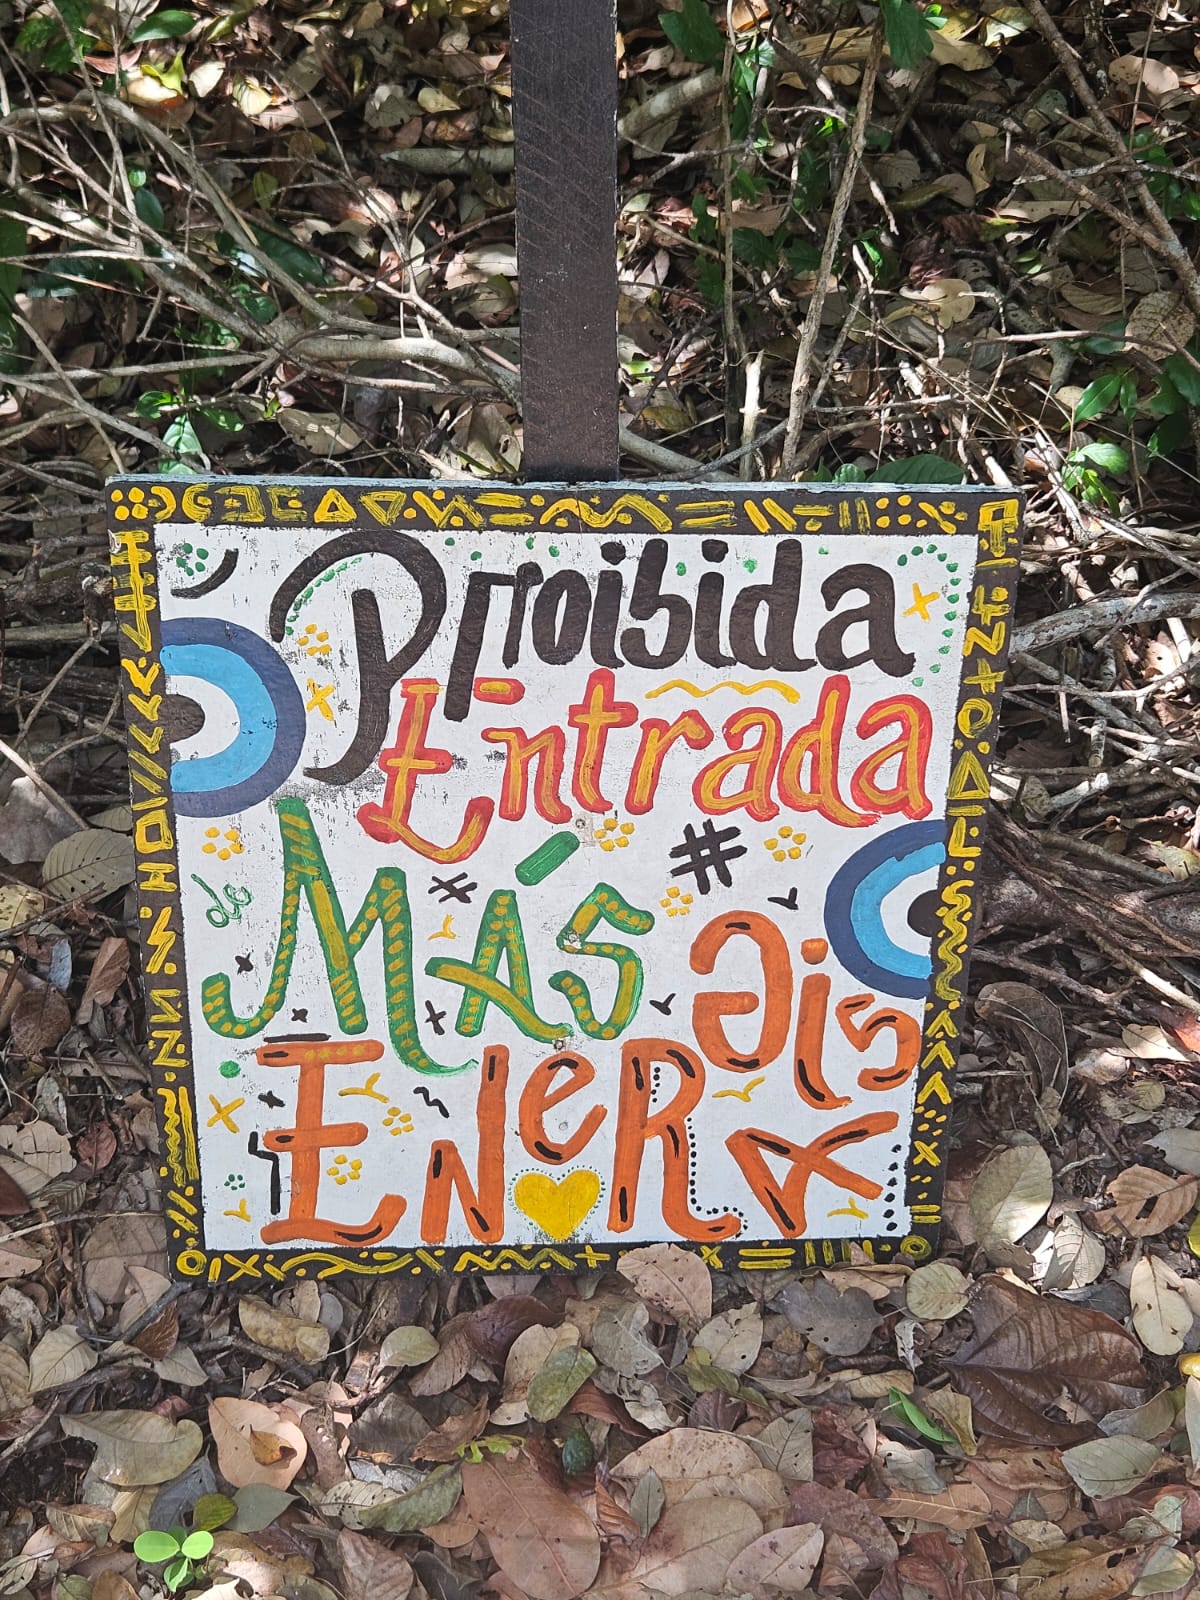 Proibida
Entrada
de MÁS
ENERGIAS